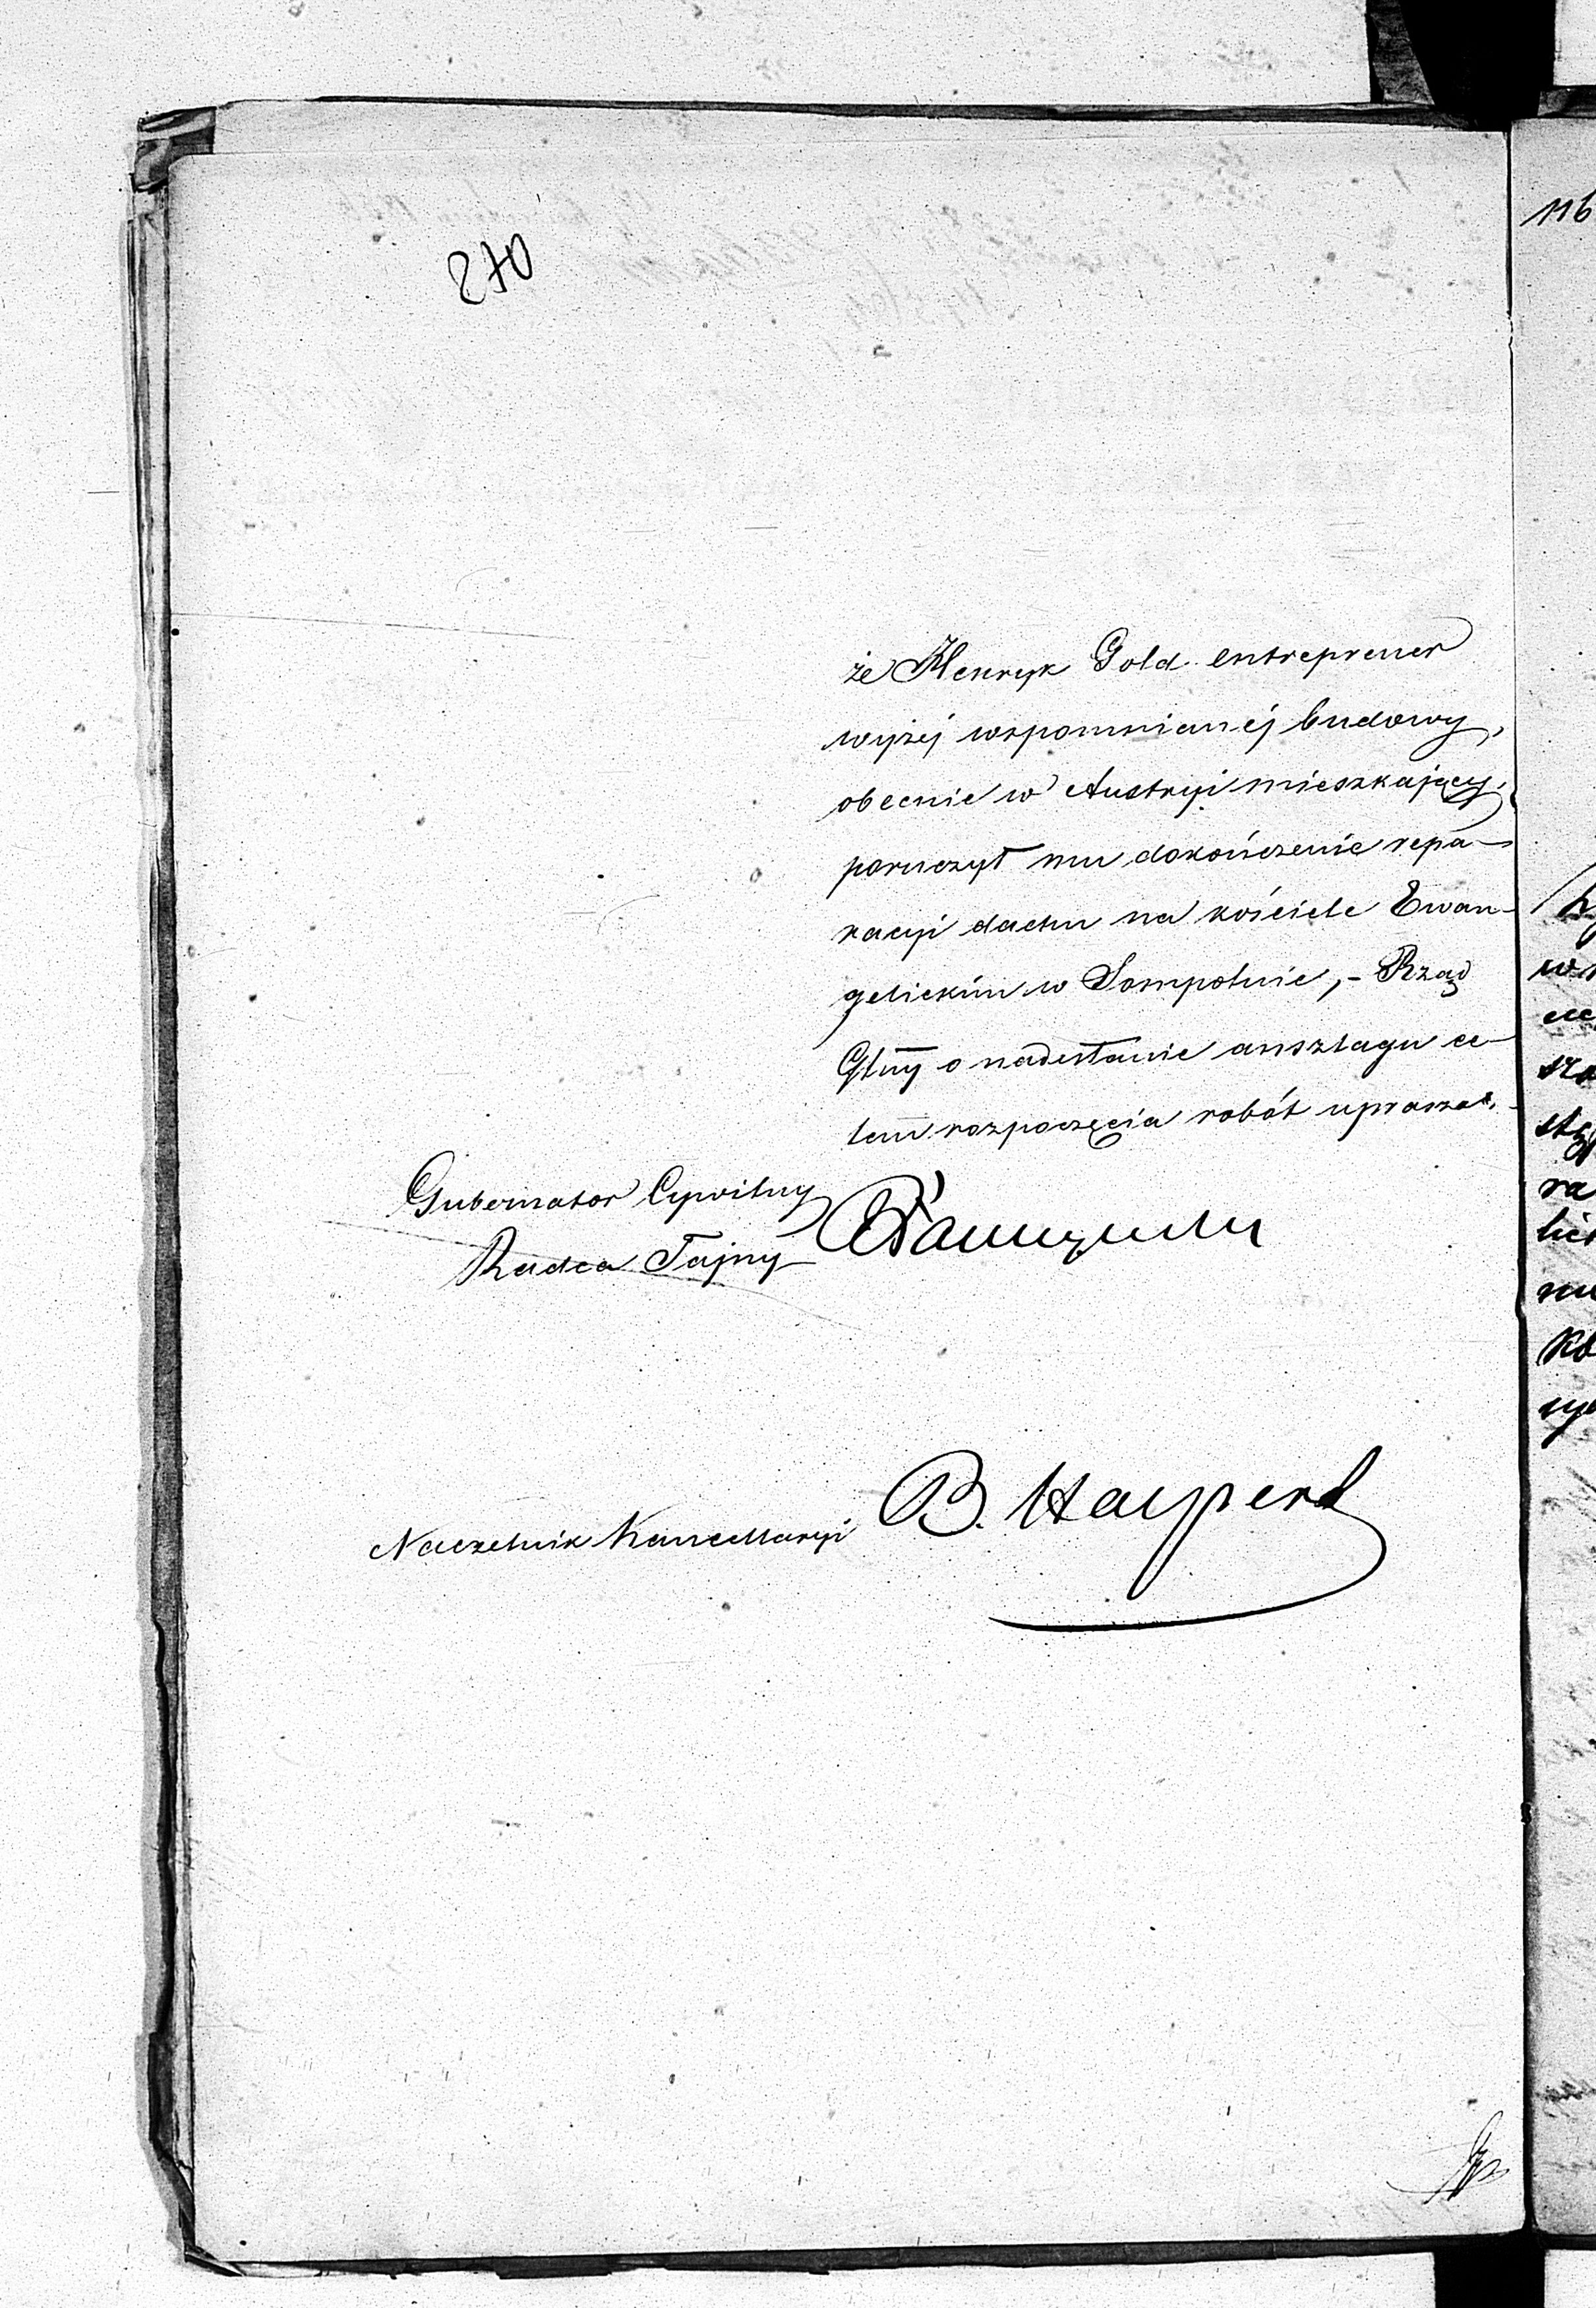 270
że Henryk Gold entreprener
wyżej wspomnianej budowy,
obecnie w Austryi mieszkający,
poruczył mu dokończenie repa-
racyi dachu na kościele Ewan-
gelickim w Sompolnie, - Rząd
Glny o nadesłanie anszlagu ce-
lem rozpoczęcia robót uprasza.
Gubernator Cywilny
Radca Tajny
Naczelnik Kancellaryi B. Halpert
116